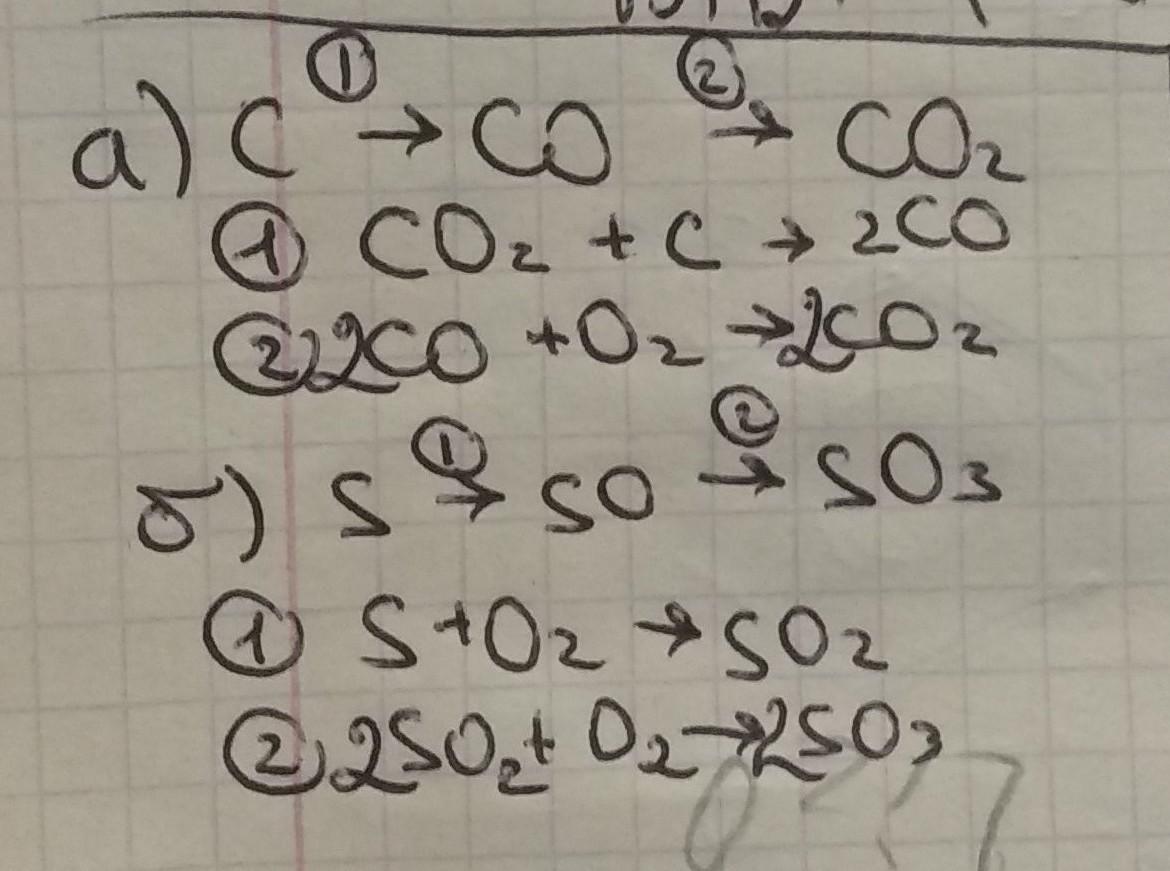 а) C ①→ CO ②→ CO₂
① CO₂ + C → 2CO
② 2CO + O₂ → 2CO₂
б) S ①→ SO ②→ SO₃
① S + O₂ → SO₂
② 2SO₂ + O₂ → 2SO₃